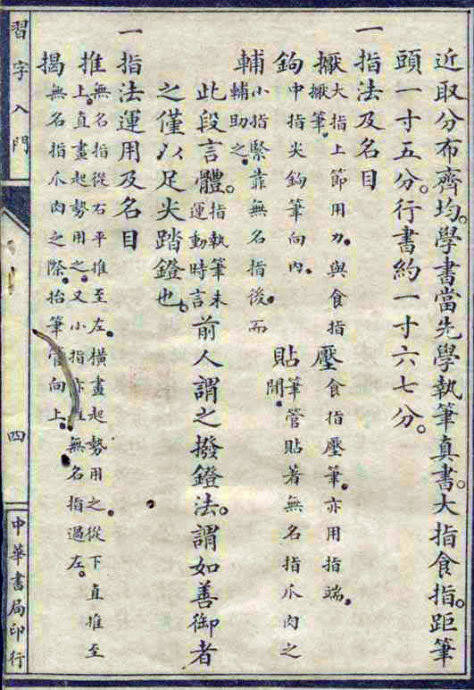 近取分布齊均。學書當先學執筆真書。大指食指。距筆
頭一寸五分。行書約一寸六七分。
一指法及名目
擫大指上節用力。與食指擫筆。壓食指壓筆。亦用指端。
鉤中指尖鉤筆向內。貼筆管貼著無名指爪肉之間。
輔小指緊靠無名指後。而輔助之。
此段言體。指執筆未運動時言前人謂之撥鐙法。謂如善御者
之僅以足尖踏鐙也。
一指法運用及名目
推無名指從右平推至左。橫畫起勢用之。從下直推至上。直畫起勢用之。又小指亦無名指過左。
揭無名指爪肉之際。抬筆管向上。
習字入門
四
中華書局印行